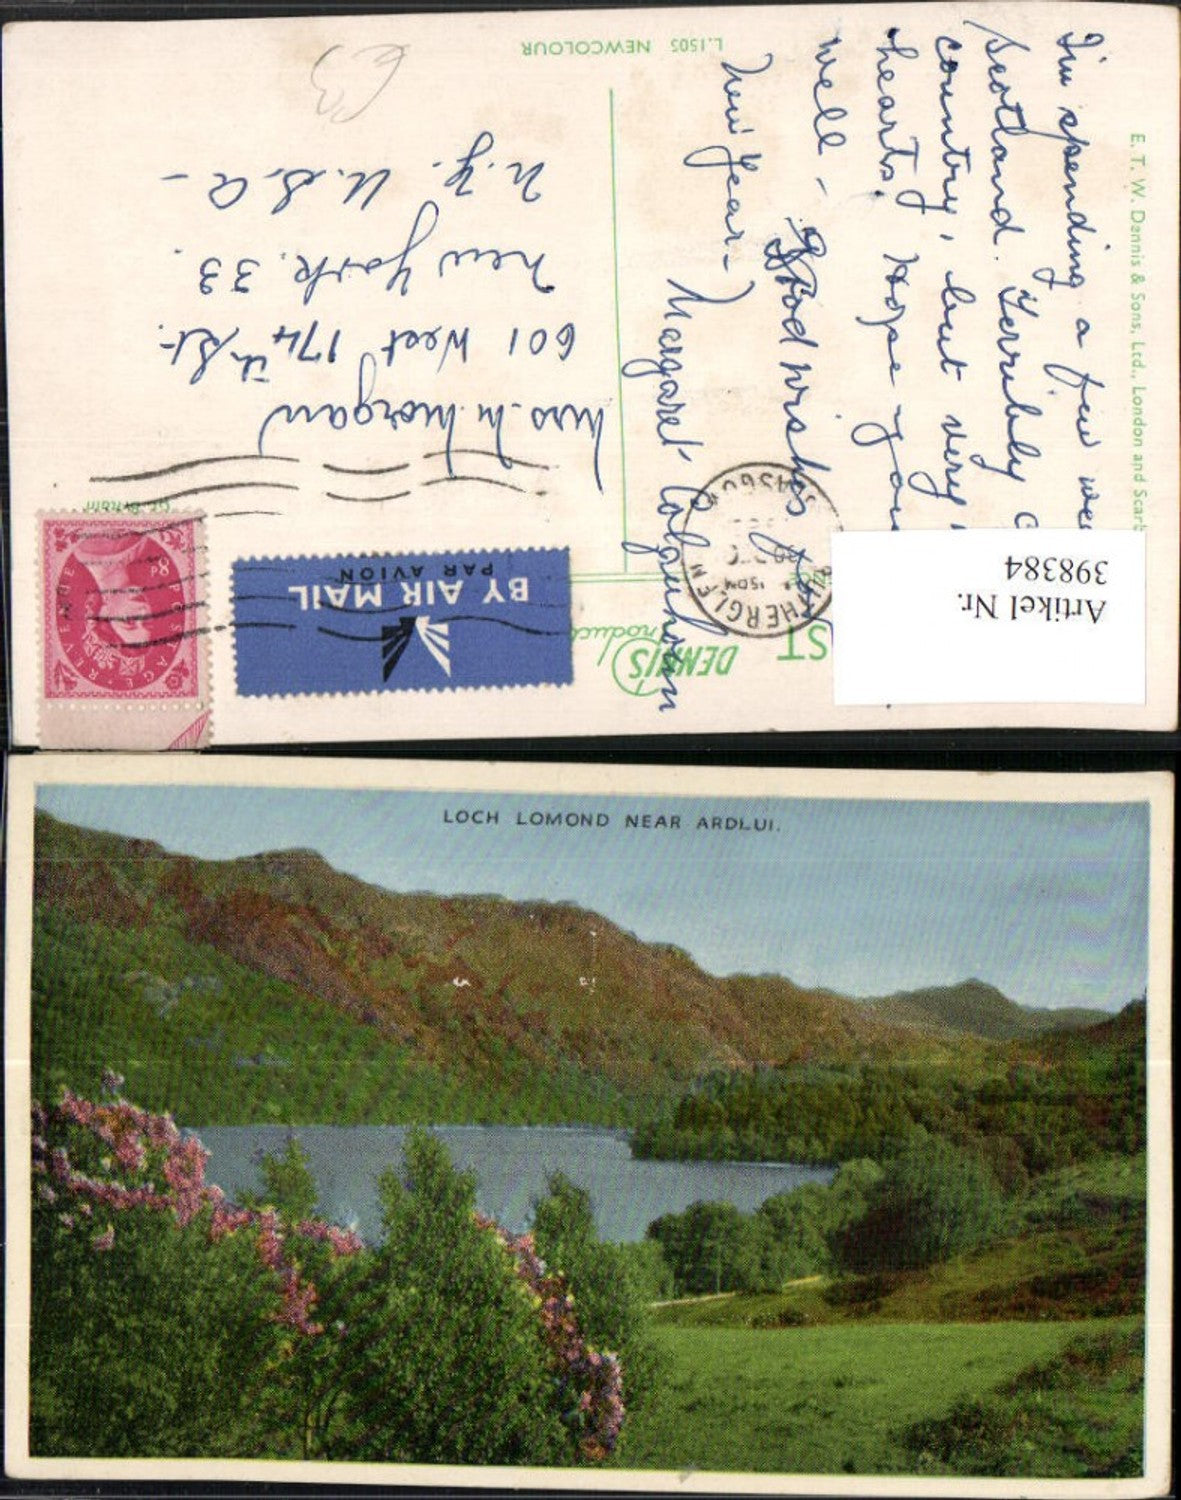 I'm spending a few
Scotland. Terribly
country, but very
hearts. Hope you
well - Good wishes
New Year -
Margaret Colquhoun
Mrs. M. Morgan
601 West 174th St.
New York. 33.
N.Y. U.S.A -
L.1505 NEWCOLOUR
E. T. W. Dennis & Sons, Ltd., London and Scarb
DENNIS
Produc
ST
Gt. Britain
POSTAGE REVENUE
8D
BY AIR MAIL
PAR AVION
RUTHERGLEN
GLASGOW
Artikel Nr.
398384
£3
LOCH LOMOND NEAR ARDLUI.